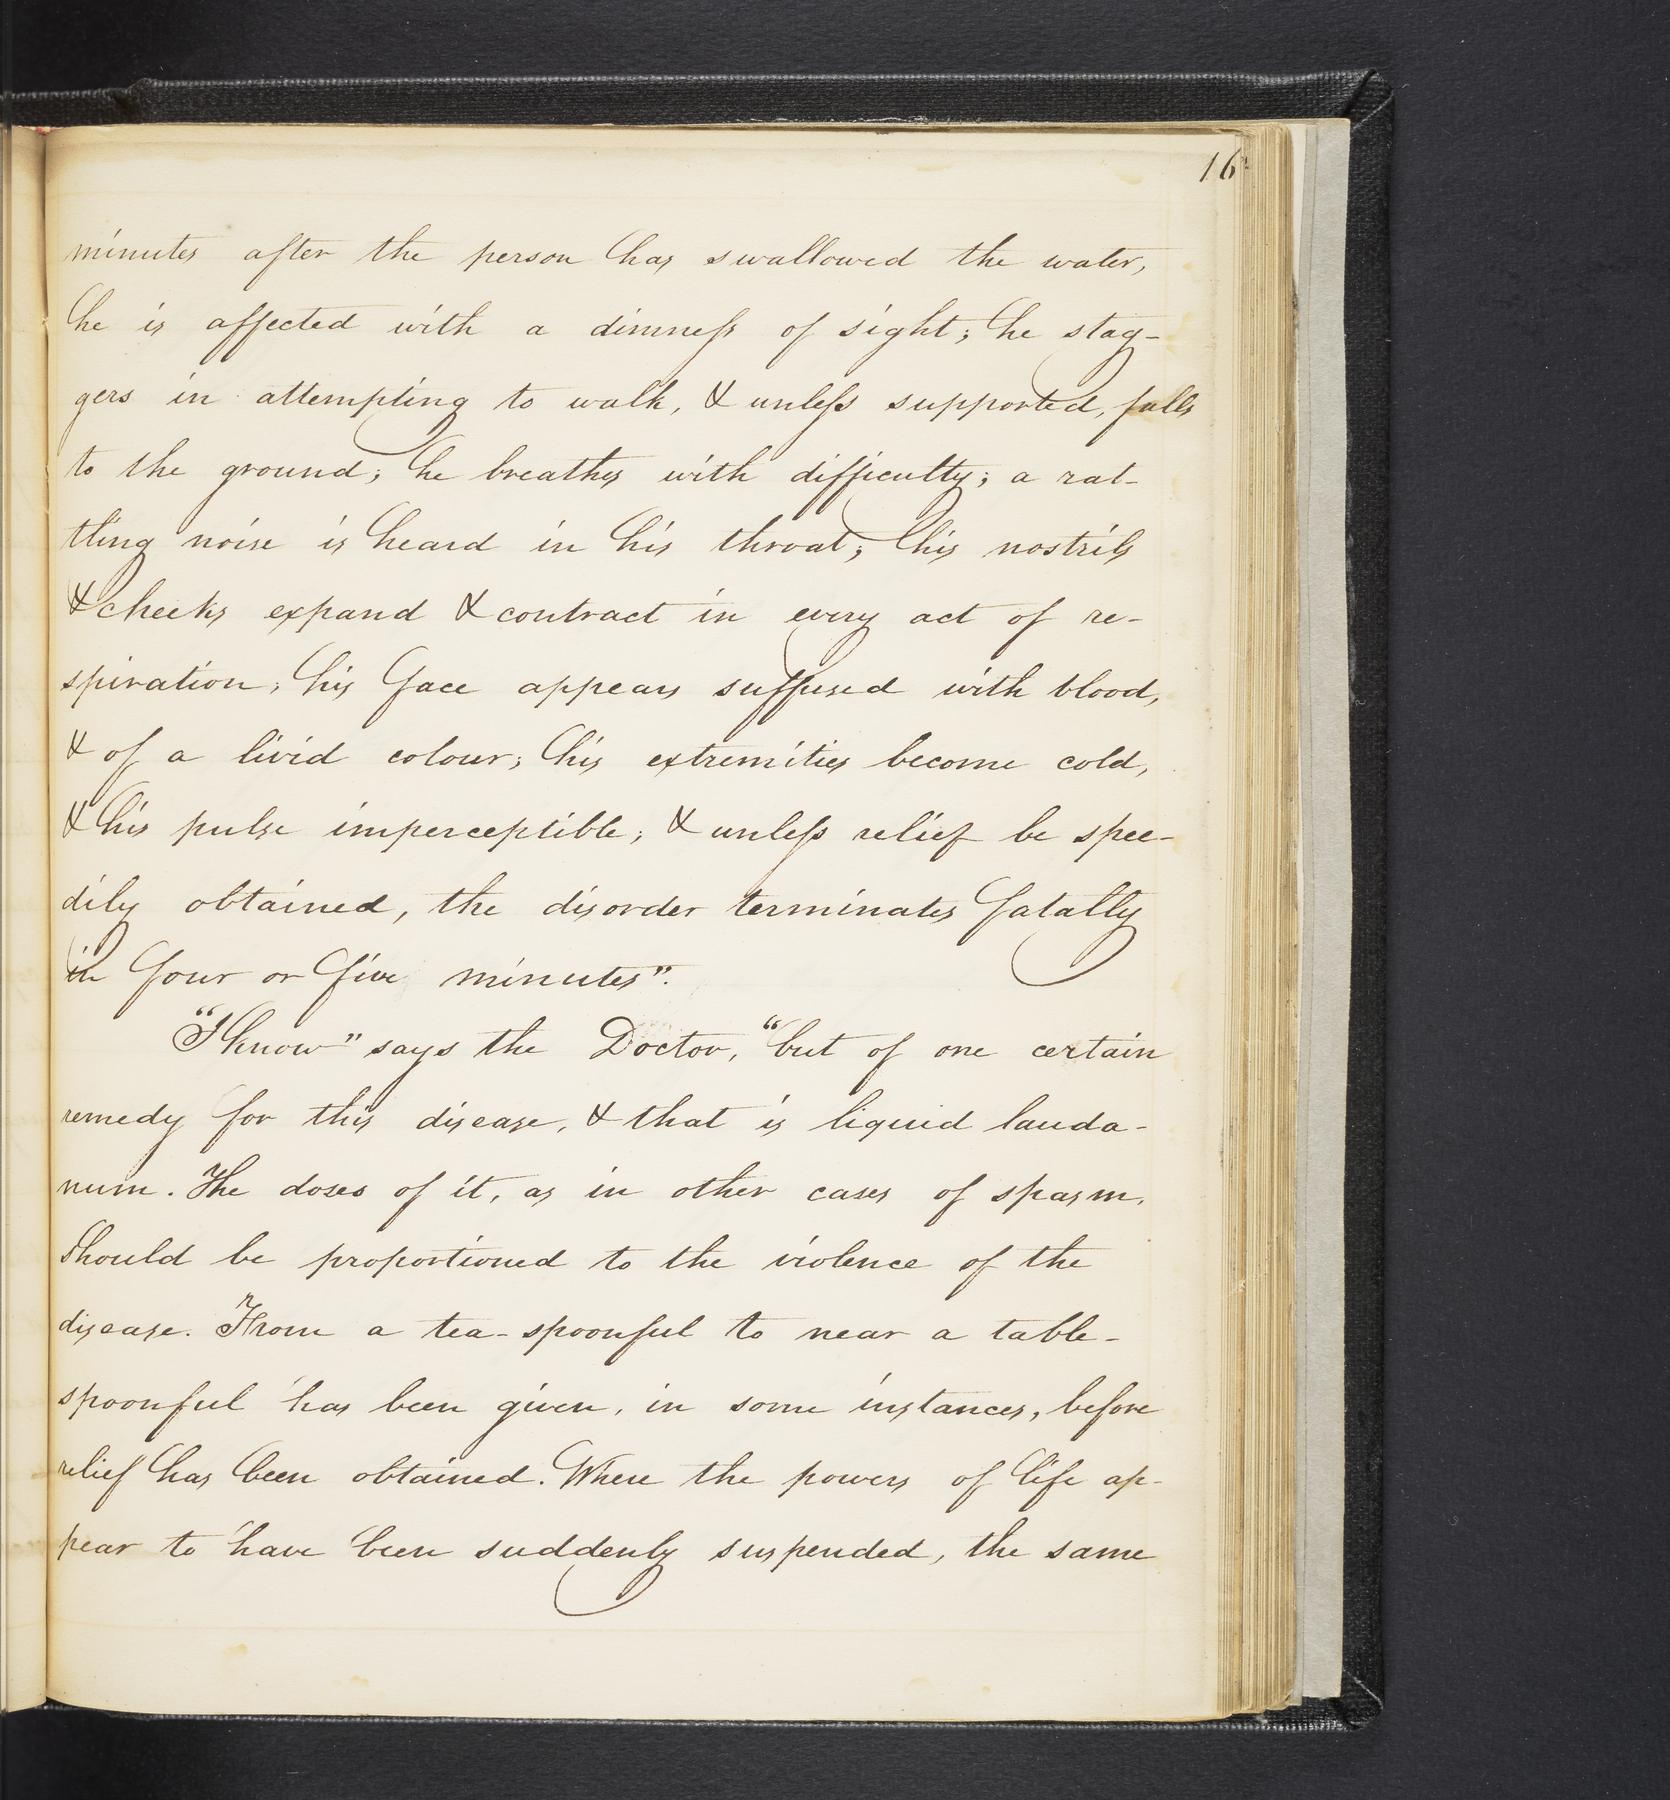 16
minutes after the person has swallowed the water,
he is affected with a dimneſs of sight; he stag-
gers in attempting to walk, & unleſs supported, falls
to the ground; he breathes with difficulty; a rat-
tling noise is heard in his throat; his nostrils
& cheeks expand & contract in every act of re-
spiration; his face appears suffused with blood,
& of a livid colour; his extremities become cold,
& his pulse imperceptible; & unleſs relief be spee-
dily obtained, the disorder terminates fatally
in four or five minutes".
"I know" says the Doctor, "but of one certain
remedy for this disease, & that is liquid lauda-
num. The doses of it, as in other cases of spasm,
should be proportioned to the violence of the
disease. From a tea-spoonful to near a table-
spoonful has been given, in some instances, before
relief has been obtained. Where the powers of life ap-
pear to have been suddenly suspended, the same